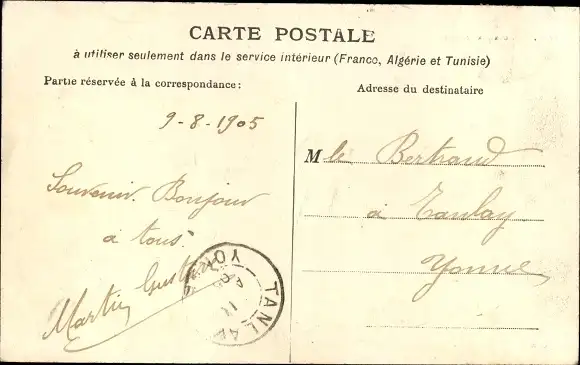 CARTE POSTALE
à utiliser seulement dans le service intérieur (France, Algérie et Tunisie)
Partie réservée à la correspondance:
Adresse du destinataire
9-8-1905
Souvenir. Bonjour
à tous.
Martin
Mlle Bertrand
à Tanlay
Yonne
TANLAY
YONNE